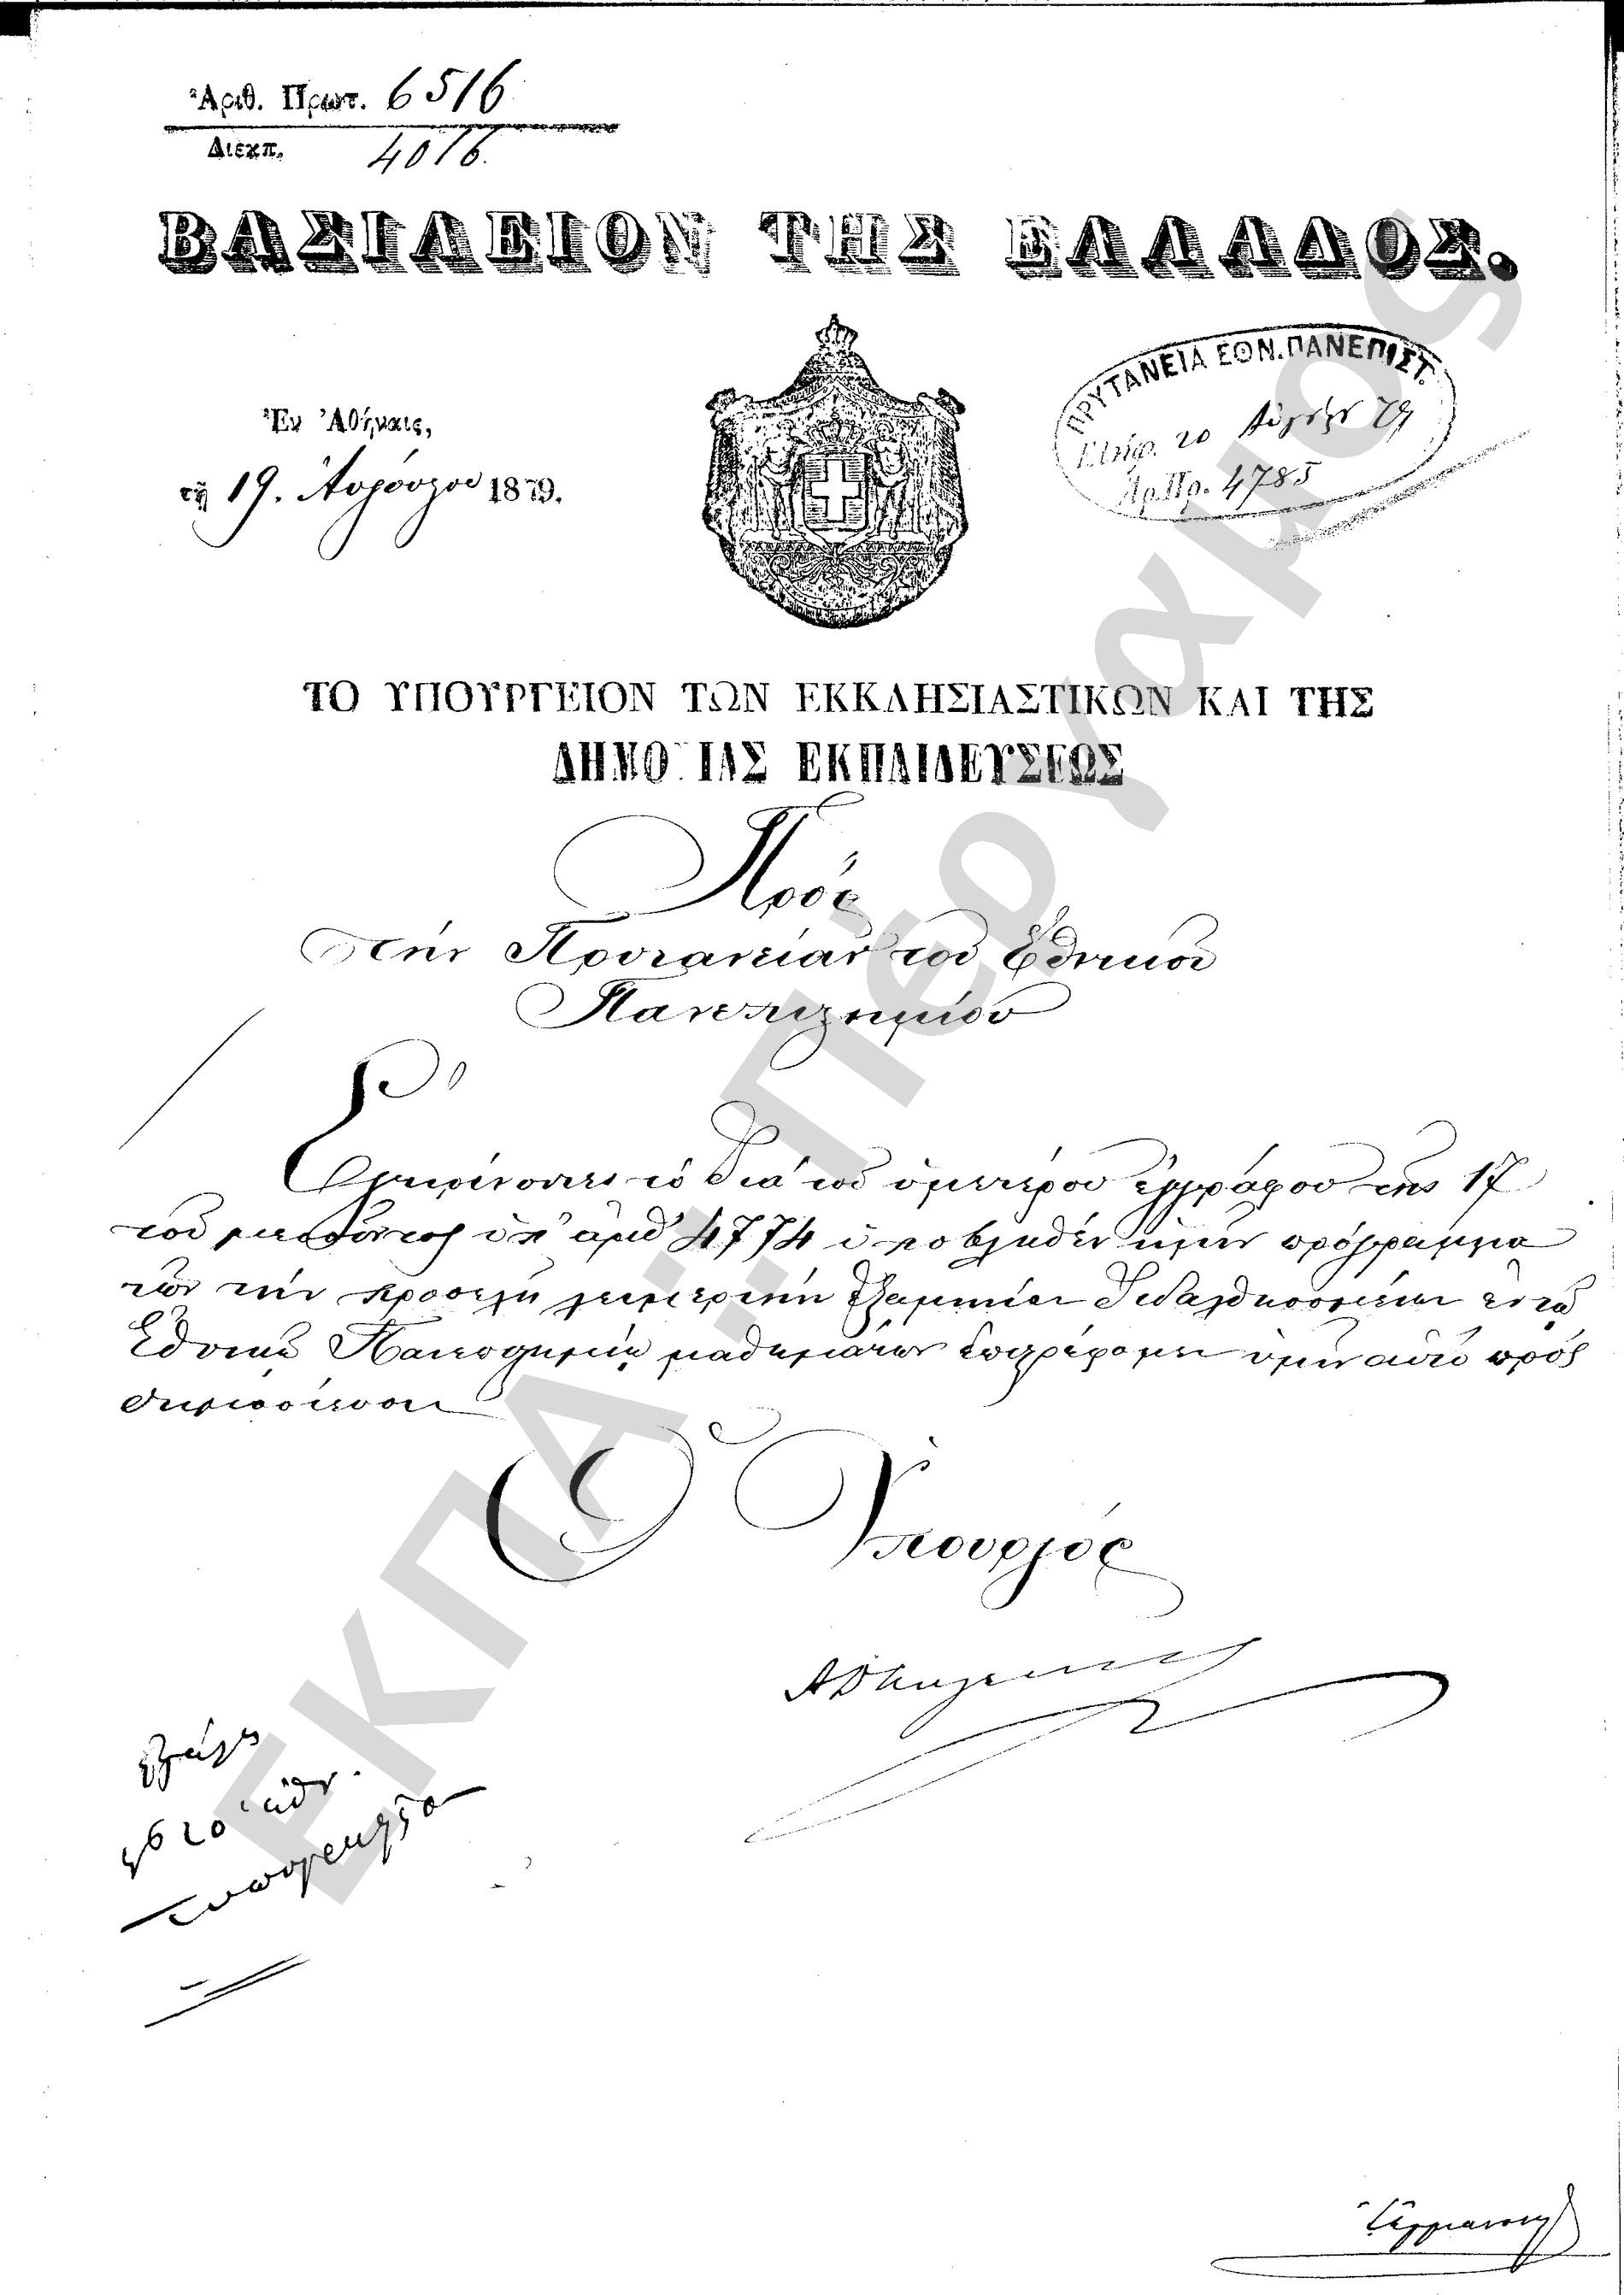 Ἀριθ. Πρωτ. 6516
Διεκπ. 4016.
ΒΑΣΙΛΕΙΟΝ ΤΗΣ ΕΛΛΑΔΟΣ.
Ἐν Ἀθήναις,
τῇ 19. Αὐγούστου 1879.
ΠΡΥΤΑΝΕΙΑ ΕΘΝ. ΠΑΝΕΠΙΣΤ.
Ἐλήφ. 20 Αὐγούς 79
Ἀρ. Πρ. 4785
ΤΟ ΥΠΟΥΡΓΕΙΟΝ ΤΩΝ ΕΚΚΛΗΣΙΑΣΤΙΚΩΝ ΚΑΙ ΤΗΣ
ΔΗΜΟΣΙΑΣ ΕΚΠΑΙΔΕΥΣΕΩΣ
Πρός
τὴν Πρυτανείαν τοῦ Ἐθνικοῦ
Πανεπιστημίου
Ἐγκρίνοντες τὸ διὰ τοῦ ὑμετέρου ἐγγράφου τῆς 17
τοῦ μηνὸς ὑπ' ἀριθ. 4774 ὑποβληθὲν ἡμῖν πρόγραμμα
τῶν τὴν προσεχῆ χειμερινὴν ἑξαμηνίαν διδαχθησομένων ἐν τῷ
Ἐθνικῷ Πανεπιστημίῳ μαθημάτων ἐπιστρέφομεν ὑμῖν αὐτὸ πρὸς
δημοσίευσιν
Ὁ Ὑπουργός
ΕΚΠΑ - Πέργαμος